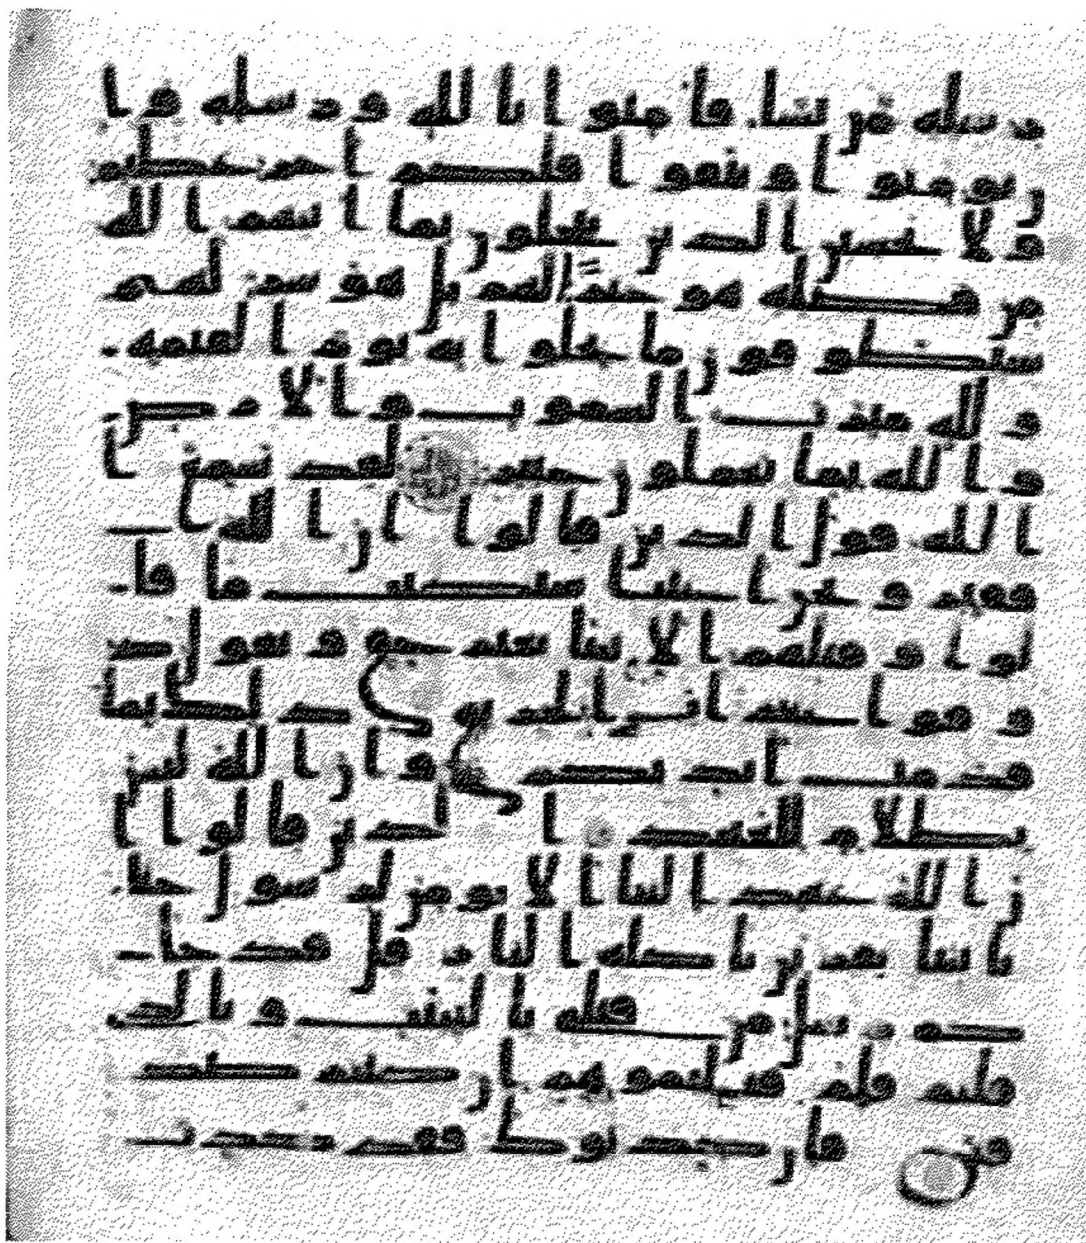 رسله من يشا فامنوا بالله ورسله وا
ن تومنوا وتتقوا فلكم اجر عظيم
ولا يحسبن الذين يبخلون بما اتيهم الله
من فضله هو خيرا لهم بل هو شر لهم
سيطوقون ما بخلوا به يوم القيمه
ولله ميرث السموت والارض
والله بما تعملون خبير لقد سمع ا
الله قول الذين قالوا ان الله
فقير ونحن اغنيا سنكتب ما قا
لوا وقتلهم الانبيا بغير حق ونقول ذ
وقوا عذاب الحريق ذلك بما
قدمت ايديكم وان الله ليس
بظلام للعبيد الذين قالوا ا
ن الله عهد الينا الا نومن لرسول حتى
ياتينا بقربن تاكله النار قل قد جا
كم رسل من قبلي بالبينت وبالذي
قلتم فلم قتلتموهم ان كنتم صد
قين فان كذبوك فقد كذب